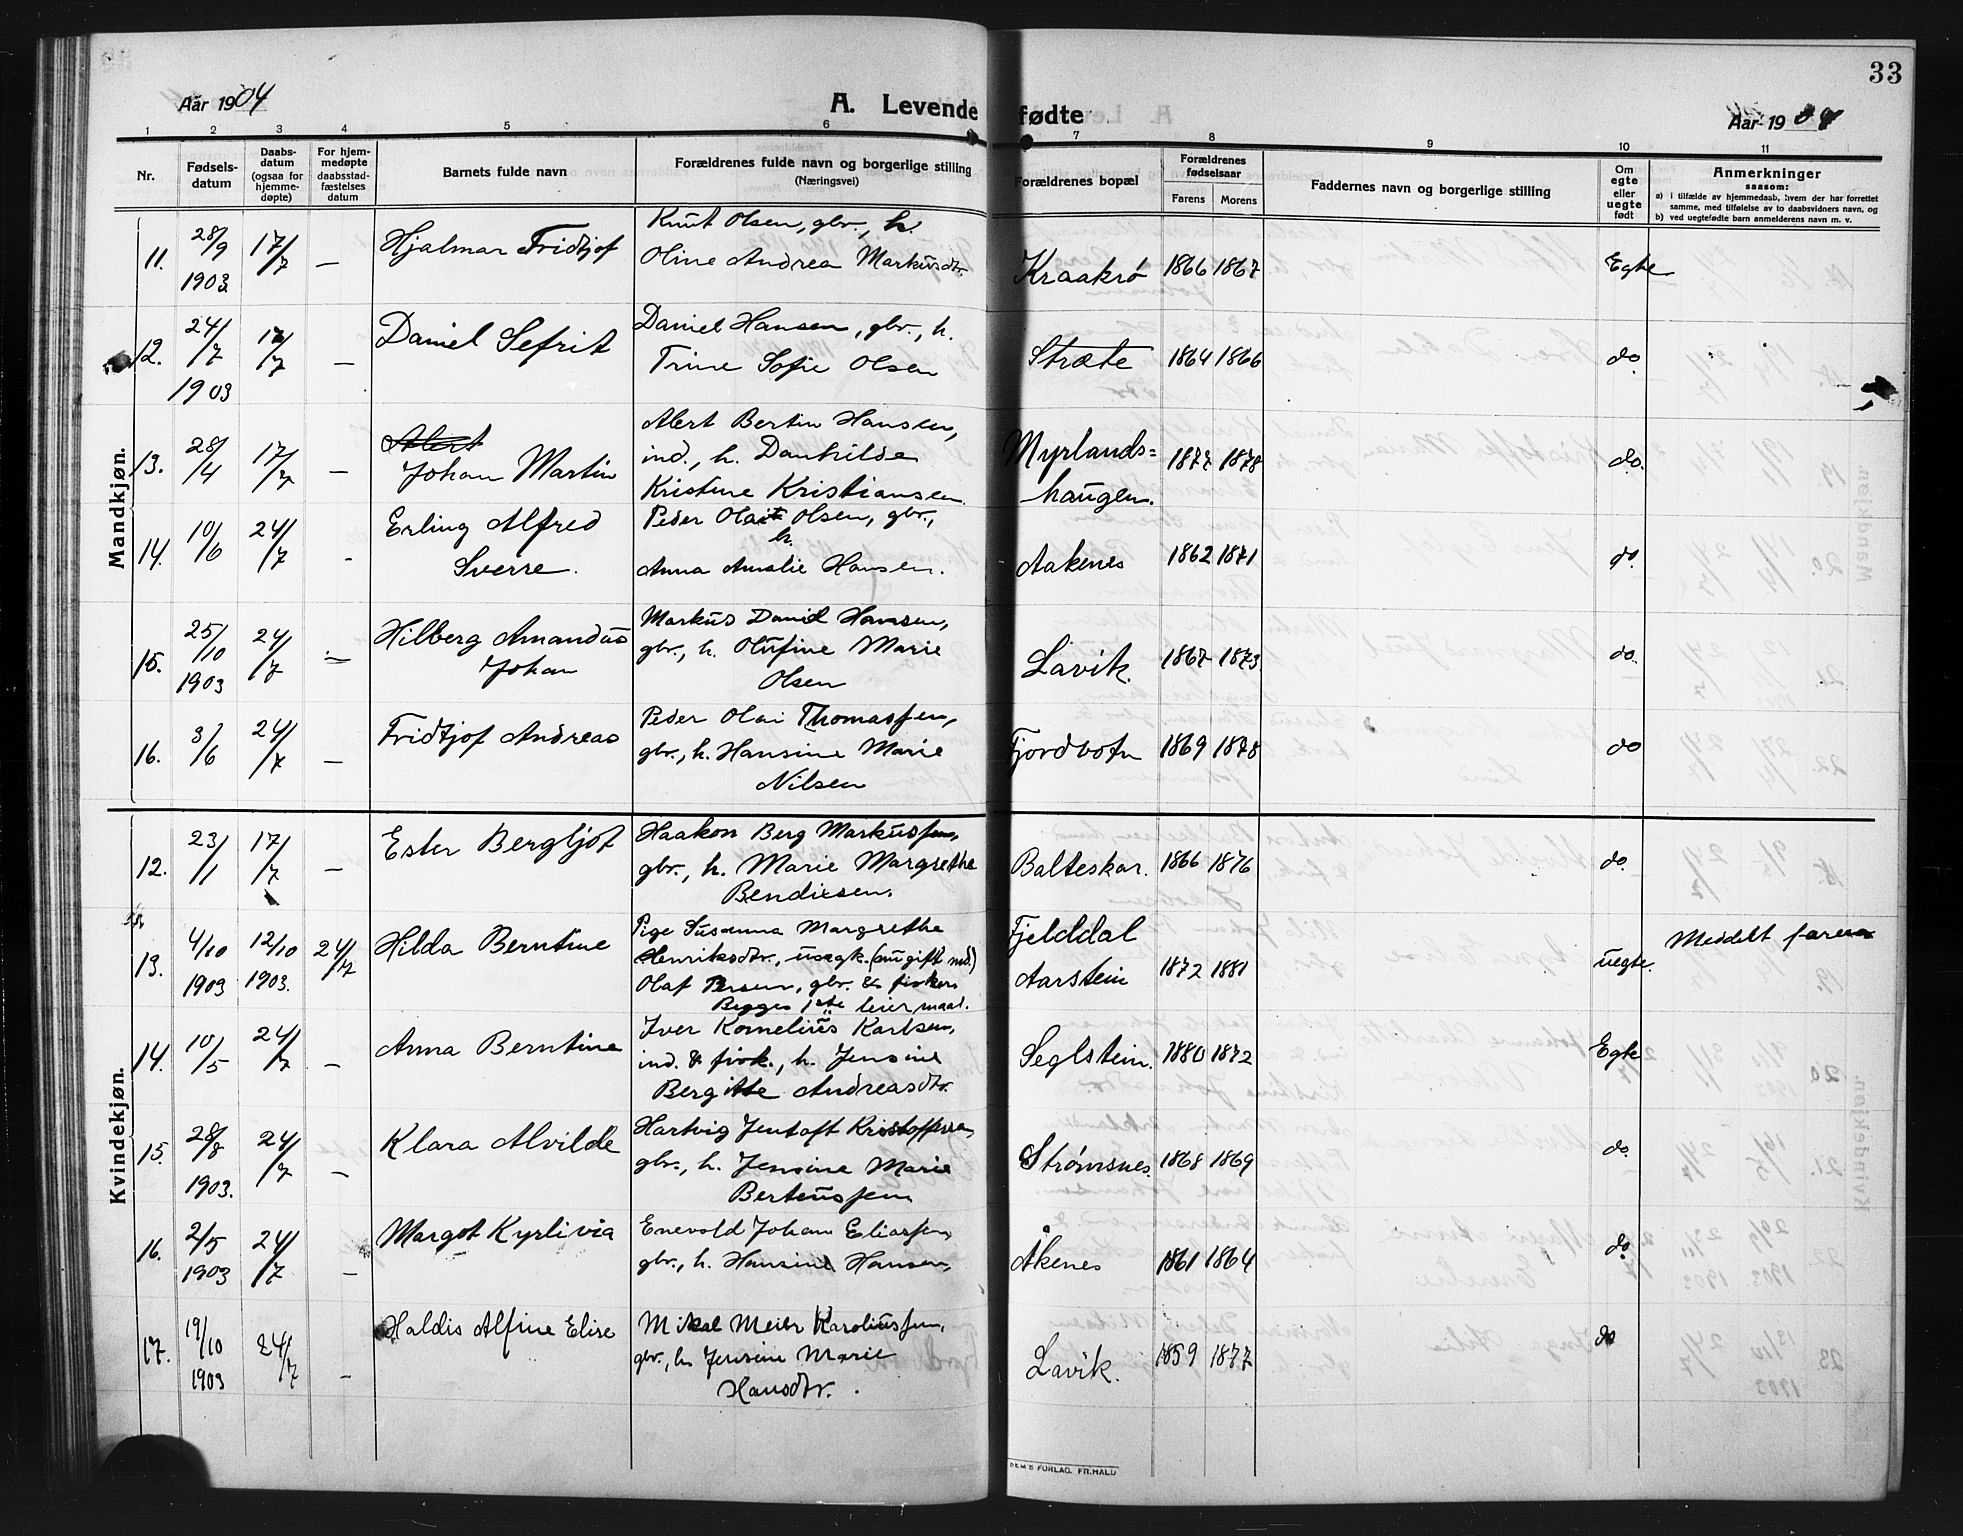 33
Aar 1904
A. Levende fødte
Aar 1904
1 2 3 4 5 6 7 8 9 10 11
Nr.
Fødsels-
datum
Daabs-
datum
(ogsaa for
hjemme-
døpte)
For hjem-
medøpte
daabsstad-
fæstelses
datum
Barnets fulde navn
Forældrenes fulde navn og borgerlige stilling
(Næringsvei)
Forældrenes bopæl
Forældrenes
fødselsaar
Farens Morens
Faddernes navn og borgerlige stilling
Om
egte
eller
uegte
født
Anmerkninger
saasom:
a) i tilfælde av hjemmedaab, hvem der har forrettet
samme, med tilføielse av to daabsvidners navn, og
b) ved uegtefødte barn anmelderens navn m. v.
Mandkjøn.
11. 28/9 1903 17/7 — Hjalmar Fridtjof
Knut Olsen, gbr., h.
Oline Andrea Markusdtr.
Kraakrø 1866 1867 Egte
12. 24/7 1903 17/7 — Daniel Sefrit
Daniel Hansen, gbr., h.
Trine Sofie Olsen
Stræte 1864 1866 do.
13. 28/4 17/7 — Alert
Johan Martin
Alert Bertin Hansen,
ind., h. Danhilde
Kristine Kristiansen.
Myrlands=
haugen. 1877 1878 do.
14. 10/6 24/7 - Erling Alfred
Sverre.
Peder Olai Olsen, gbr.,
h.
Anna Amalie Hansen.
Aakenes 1862 1871 do.
15. 25/10 1903 24/7 — Hilberg Amandus
Johan
Markus Daniel Hansen,
gbr., h. Olufine Marie
Olsen
Lavik. 1867 1873 do.
16. 3/6 24/7 — Fridtjof Andreas
Peder Olai Thomassen,
gbr., h. Hansine Marie
Nilsen
Fjordbotn 1869 1878 do
Kvindekjøn.
12. 23/1 17/7 — Ester Bergljot
Haakon Berg Markussen,
gbr., h. Marie Margrethe
Bendixsen.
Balteskar. 1866 1876 do.
13. 4/10 1903 12/10 1903. 24/7 Hilda Berntine
Pige Susanna Margrethe
Henriksdtr., usegk. (nu gift med)
Olaf Persen, gbr. & fisker
Begges 1ste leiermaal.
Fjelddal
Aarstein 1872 1881 uegte. Meddelt faren
14. 10/5 24/7 — Anna Berntine
Iver Kornelius Karlsen,
ind. & fisk., h. Jensine
Bergitte Andreasdtr.
Seglstein. 1880 1872 Egte
15. 28/8 1903. 24/7 — Klara Alvilde
Hartvig Jentoft Kristoffersen,
gbr., h. Jensine Marie
Berteussen
Strømsnes. 1868 1869 do.
16. 2/5 1903 24/7 — Margot Kyrlivia
Enevold Johan Eliassen
gbr., h. Hansine Hansen,
Åkenes 1861 1864 do.
17. 19/10 1903 24/7 — Haldis Alfine Elise
Mikal Meier Karoliussen,
gbr., h. Jensine Marie
Hansdtr.
Lavik. 1859 1877 do
FORLAG. FR. HALD